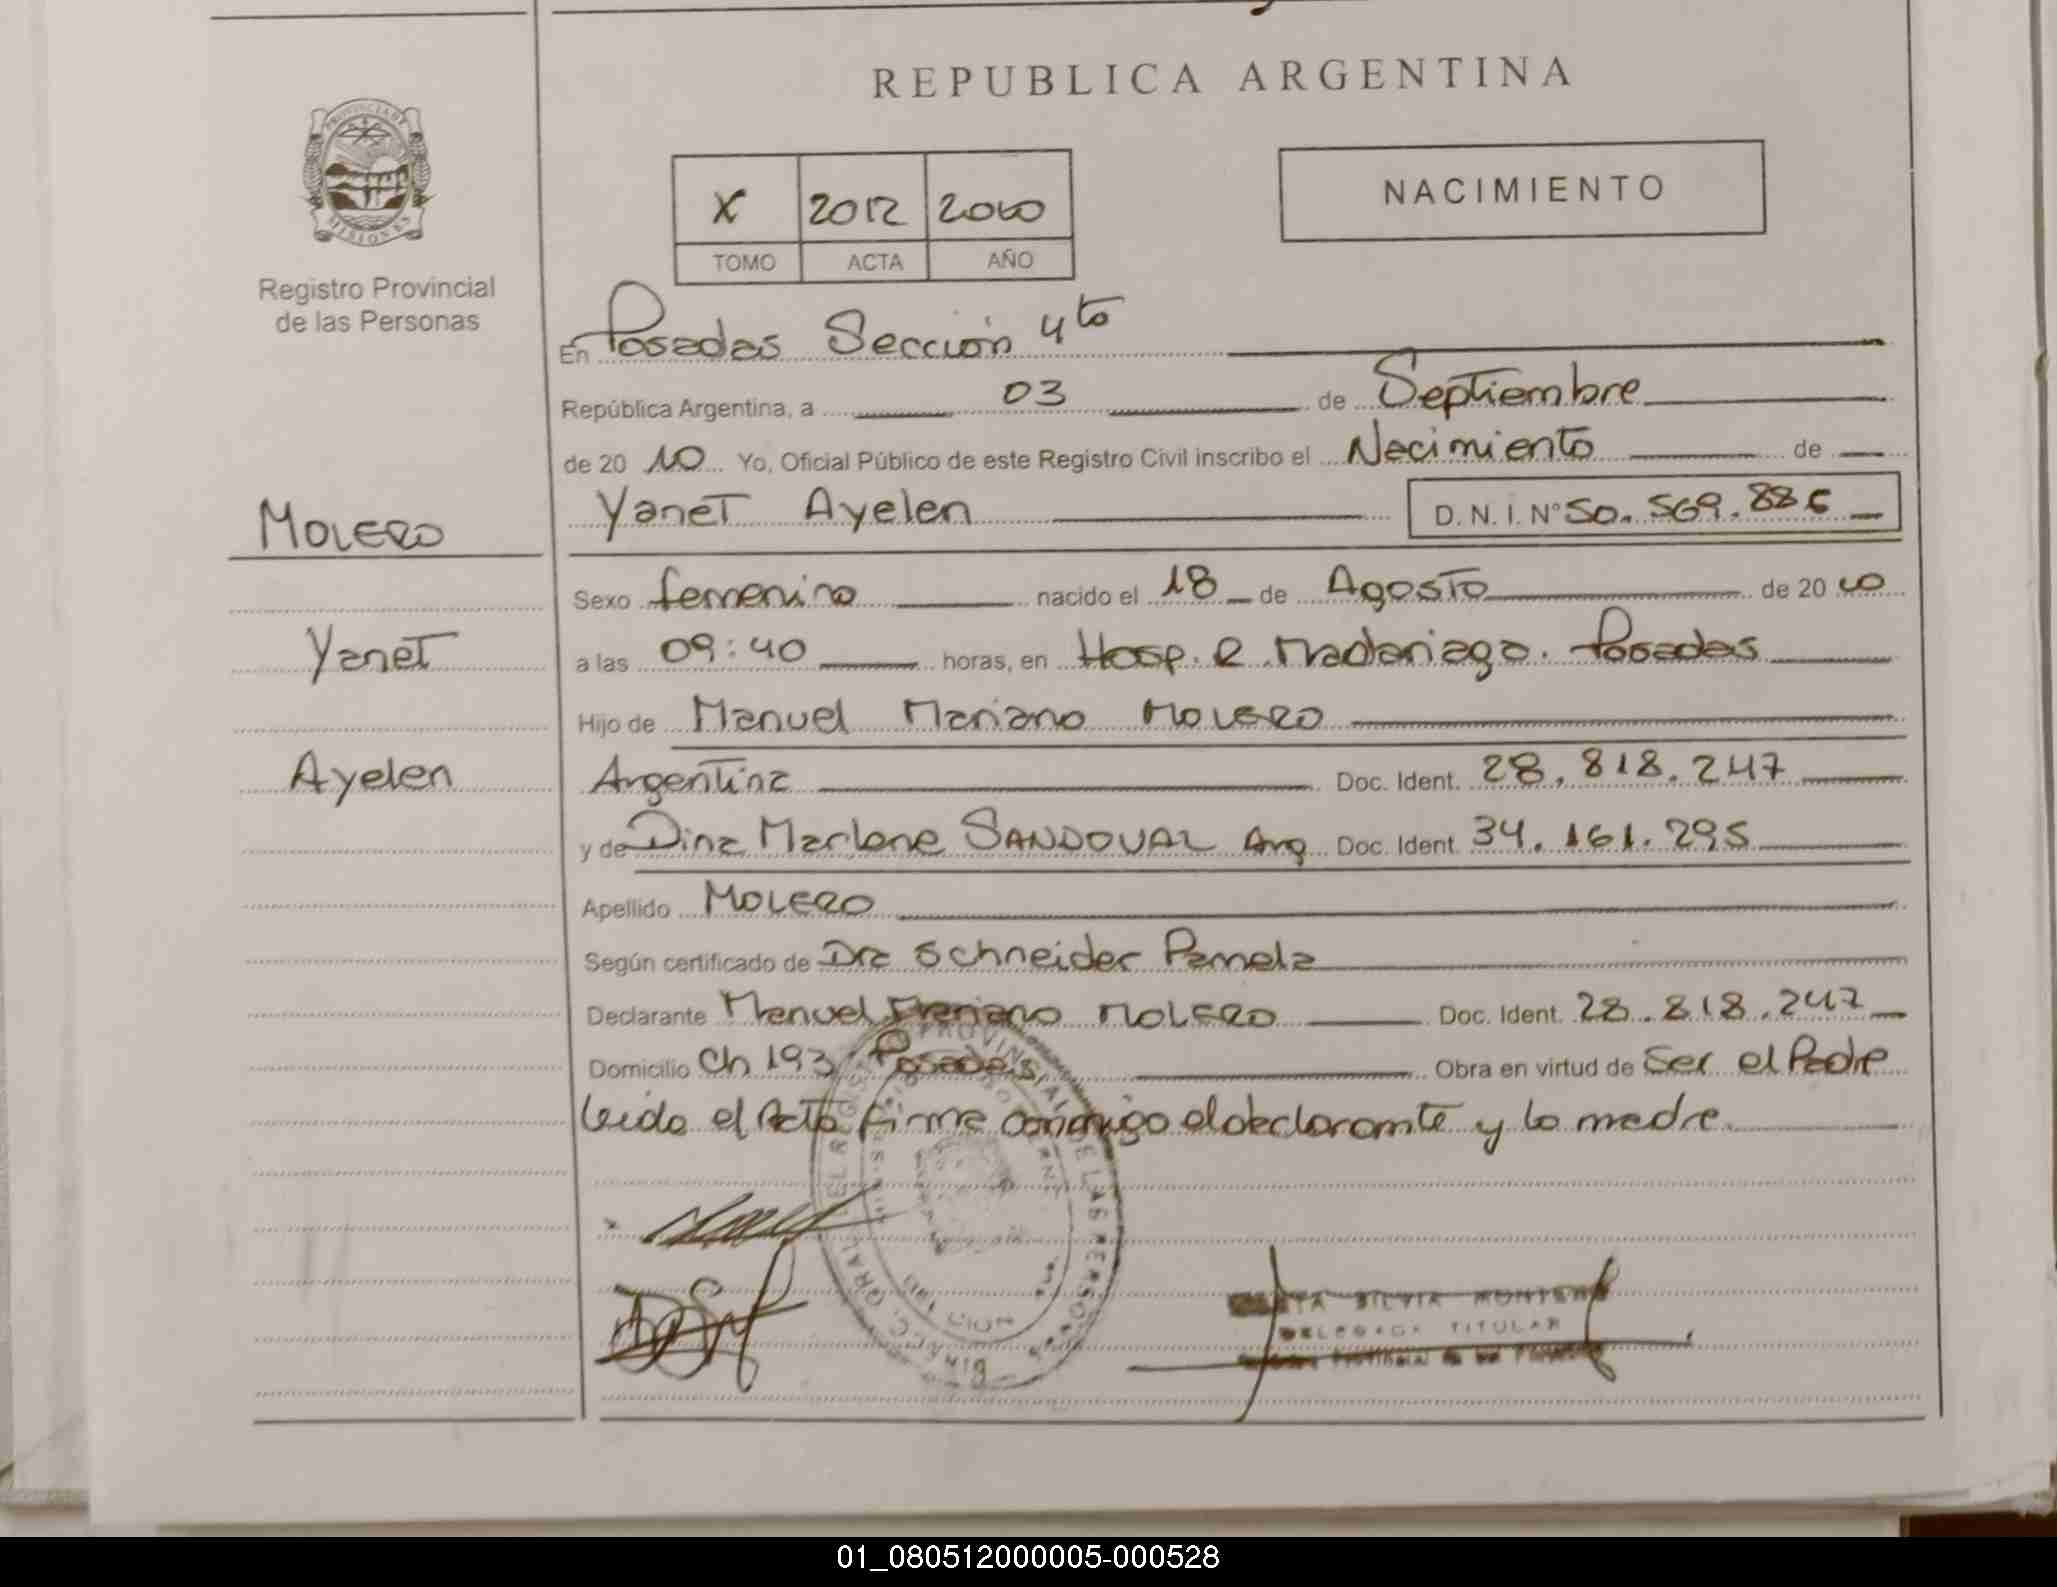 REPUBLICA ARGENTINA
PROVINCIA DE MISIONES
Registro Provincial
de las Personas
X 2012 2010
TOMO ACTA AÑO
NACIMIENTO
En Posadas Sección 4to
República Argentina, a 03 de Septiembre
de 20 10 Yo, Oficial Público de este Registro Civil inscribo el Nacimiento de
MOLERO
Yanet Ayelen D.N.I. N° 50.569.886
Sexo femenino nacido el 18 de Agosto de 20 10
Yanet
a las 09:40 horas, en Hosp. R Madariaga. Posadas
Hijo de Manuel Mariano MOLERO
Ayelen
Argentina Doc. Ident. 28.818.247
y de Dina Marlene SANDOVAL Arg Doc. Ident. 34.161.295
Apellido MOLERO
Según certificado de Dra Schneider Pamela
Declarante Manuel Mariano MOLERO Doc. Ident. 28.818.247
Domicilio Ch 193 Posadas Obra en virtud de Ser el Padre
leida el Acta firma conmigo el declarante y la madre
SILVIA
DELEGADA TITULAR
01_080512000005-000528